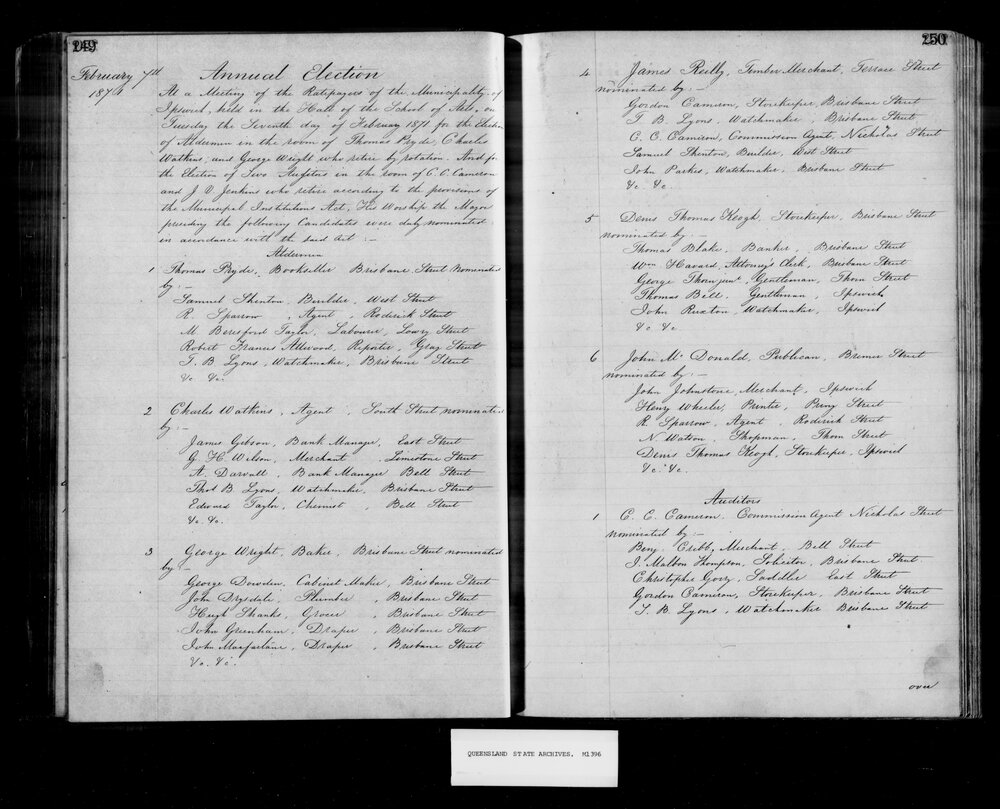 249
February 7th
1871
Annual Election
At a Meeting of the Ratepayers of the Municipality of
Ipswich, held in the Hall of the School of Arts, on
Tuesday the Seventh day of February 1871 for the Election
of Aldermen in the room of Thomas Pryde, Charles
Watkins, and George Wright who retire by rotation. And for
the Election of Two Auditors in the room of C. C. Cameron
and J Jenkins who retire according to the provisions of
the Municipal Institutions Act, His Worship the Mayor
presiding the following Candidates were duly nominated
in accordance with the said Act :—
Aldermen
1 Thomas Pryde, Bookseller Brisbane Street Nominated
by :—
Samuel Shenton, Builder, West Street
R. Sparrow , Agent , Roderick Street
M. Beresford Taylor, Labourer, Lowry Street
Robert Francis Attwood, Reporter, Gray Street
T. B. Lyons, Watchmaker, Brisbane Street
&c. &c.
2 Charles Watkins, Agent , South Street nominated
by :—
James Gibson, Bank Manager, East Street
G. H. Wilson, Merchant , Limestone Street
A. Darvall , Bank Manager Bell Street
Thos B. Lyons, Watchmaker, Brisbane Street
Edward Taylor, Chemist , Bell Street
&c. &c.
3 George Wright, Baker, Brisbane Street nominated
by :—
George Dowden, Cabinet Maker, Brisbane Street
John Drysdale, Plumber , Brisbane Street
Hugh Shanks, Grocer , Brisbane Street
John Greenham, Draper , Brisbane Street
John Macfarlane, Draper , Brisbane Street
&c. &c.
250
4 James Reilly, Timber Merchant, Terrace Street
nominated by :—
Gordon Cameron, Storekeeper, Brisbane Street
T. B. Lyons, Watchmaker , Brisbane Street
C. C. Cameron, Commission Agent, Nicholas Street
Samuel Shenton, Builder, West Street
John Parkes, Watchmaker, Brisbane Street
&c. &c.
5 Denis Thomas Keogh, Storekeeper, Brisbane Street
nominated by :—
Thomas Blake, Banker, Brisbane Street
Wm Havard, Attorney's Clerk, Brisbane Street
George Thorn junr, Gentleman, Thorn Street
Thomas Bell, Gentleman, Ipswich
John Ruxton, Watchmaker, Ipswich
&c &c
6 John Mc Donald, Publican, Bremer Street
nominated by :—
John Johnstone, Merchant, Ipswich
Henry Wheeler, Printer, Street
R. Sparrow, Agent , Roderick Street
N. Watson, Shopman, Thorn Street
Denis Thomas Keogh, Storekeeper, Ipswich
&c. &c.
Auditors
1 C. C. Cameron. Commission Agent Nicholas Street
nominated by :—
Benj. Cribb, Merchant, Bell Street
J. Malbon Thompson, Solicitor, Brisbane Street
Christopher Gorry, Saddler East Street
Gordon Cameron, Storekeeper, Brisbane Street
T. B. Lyons, Watchmaker Brisbane Street
over
QUEENSLAND STATE ARCHIVES. M1396